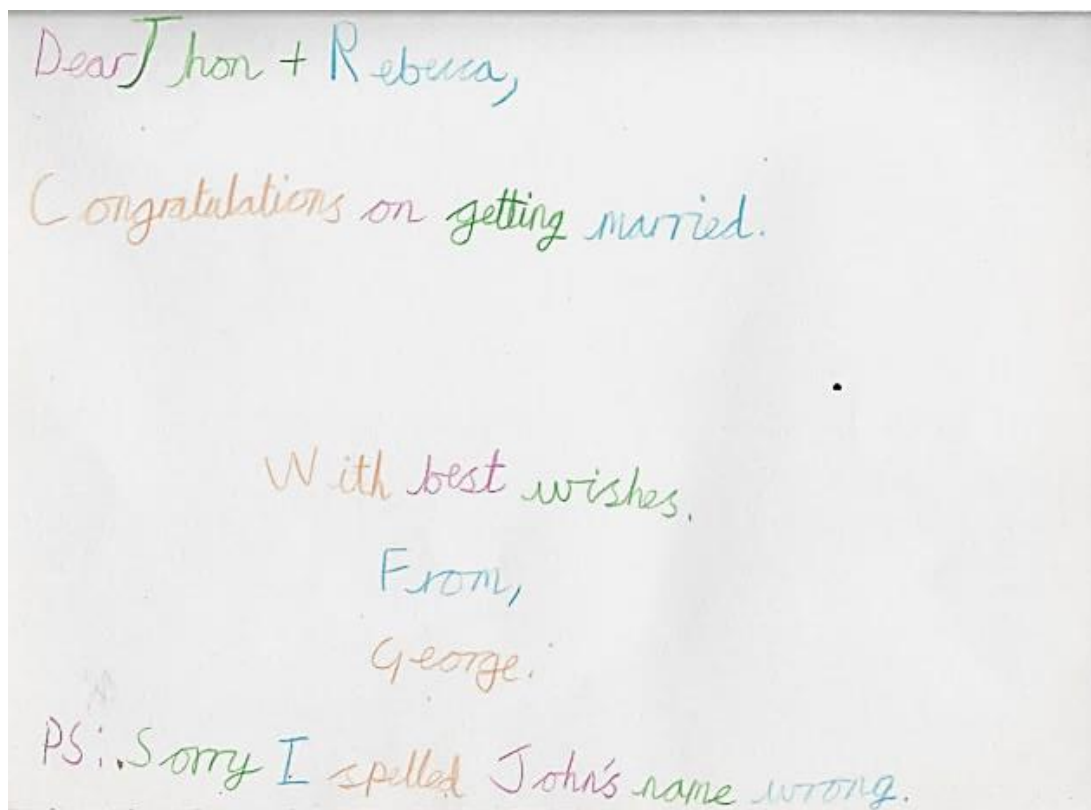 Dear Jhon + Rebecca,
Congratulations on getting married.
With best wishes.
From,
George.
PS: Sorry I spelled John's name wrong.